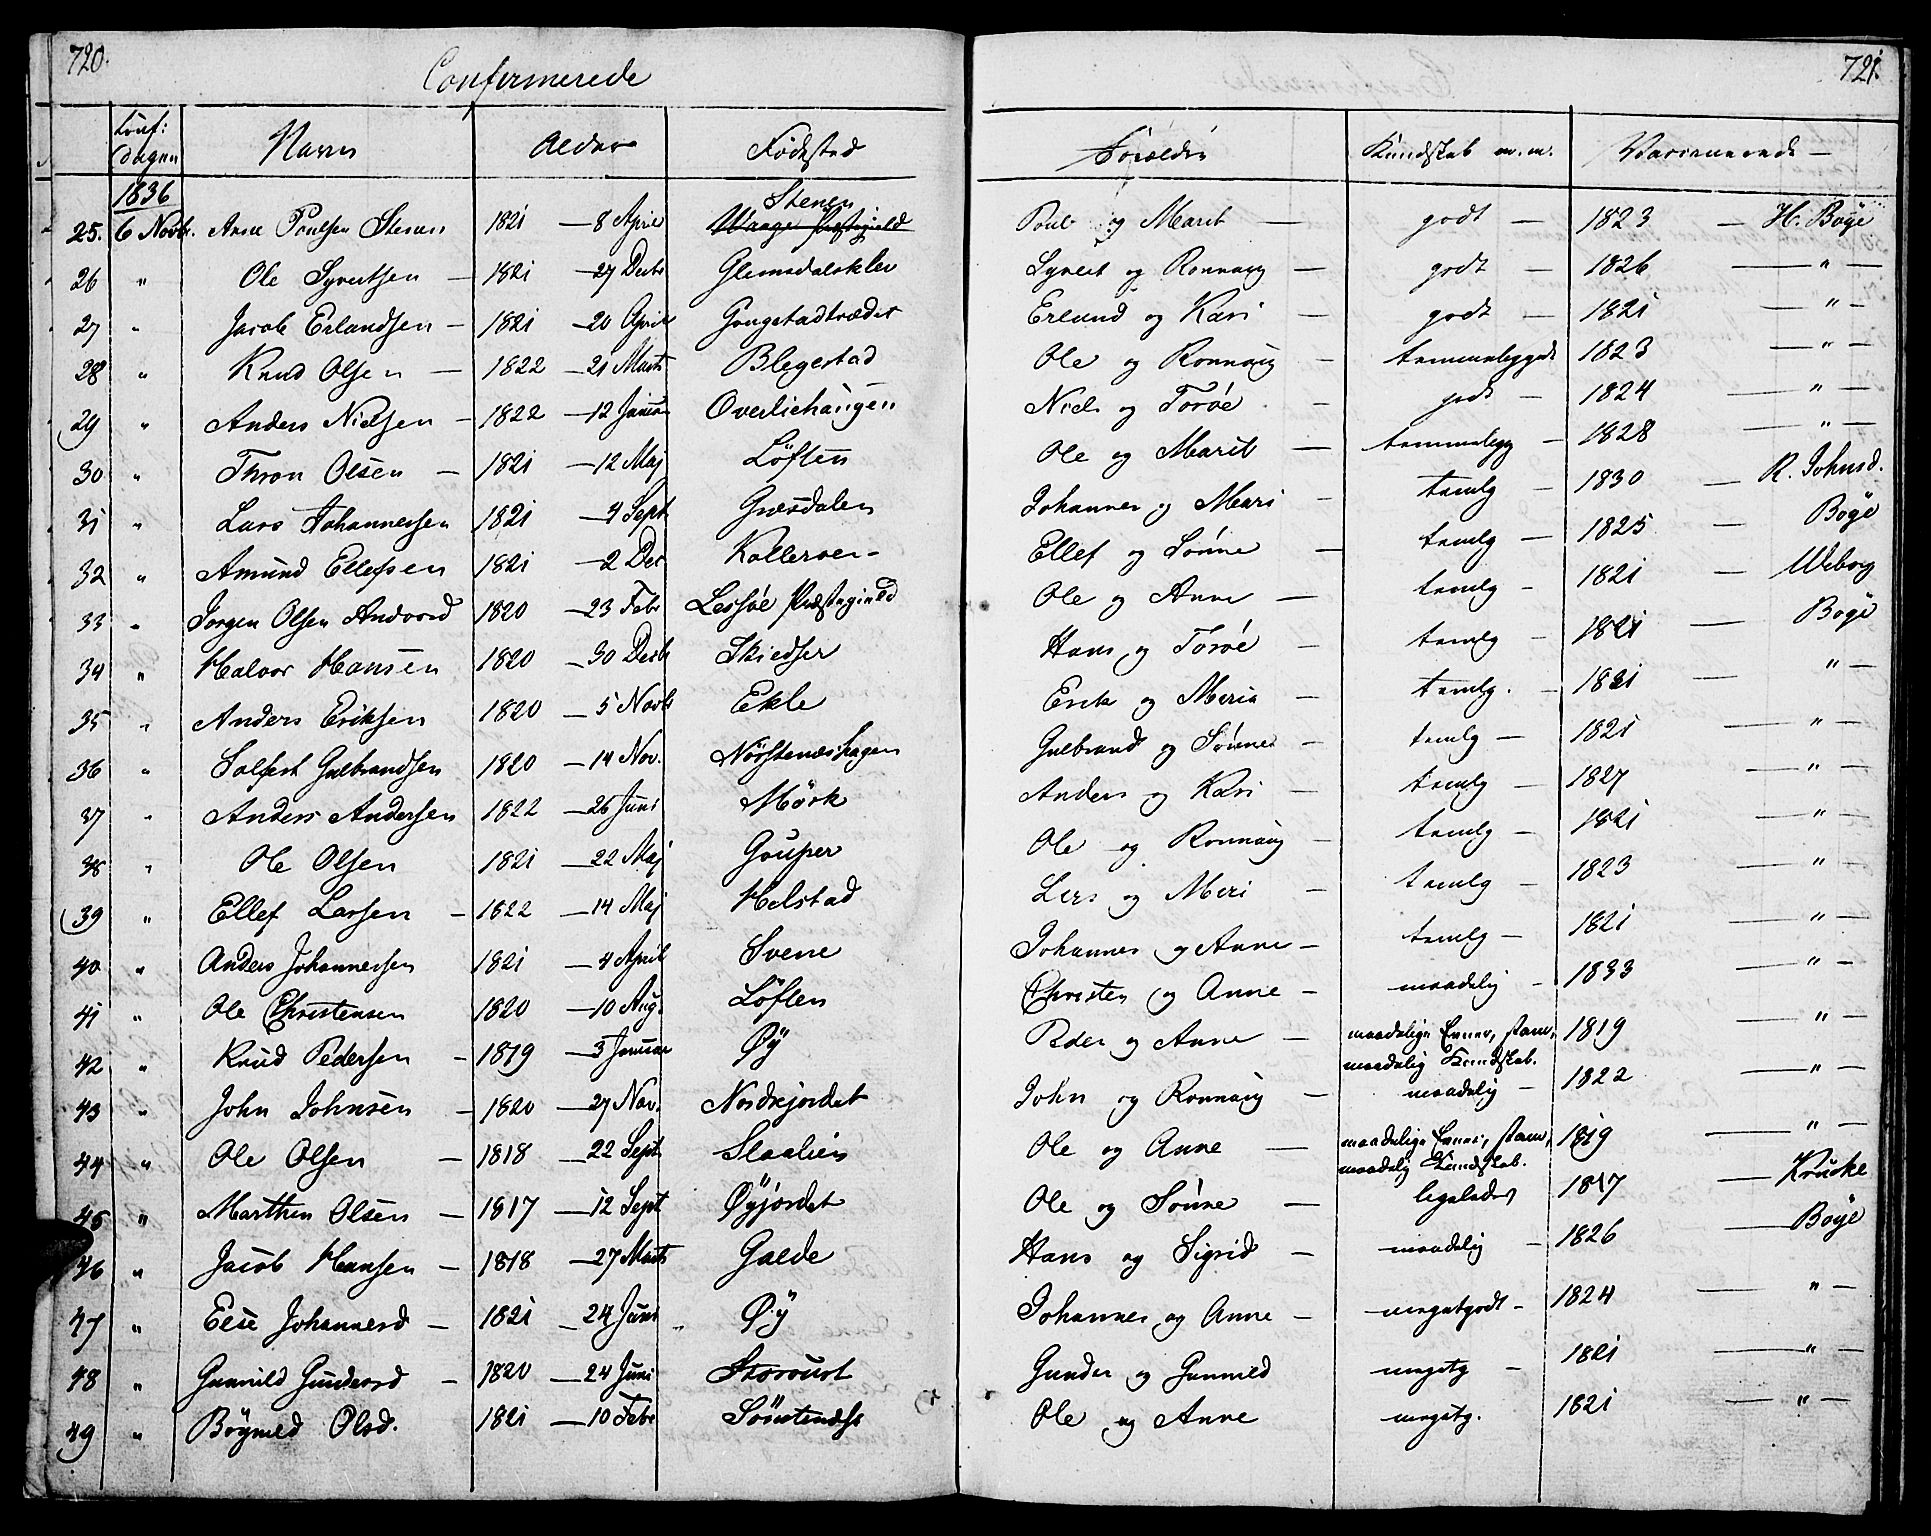 720.
Confirmerede
Conf: dagen | Navn | Alder | Fødested
1836
25. 6 Novb. Arne Poulsen Stenen 1821 — 8 April Stenen Waage Præstegield
26 " Ole Syvertsen — 1821 — 27 Decbr Glemsdalsklev
27 " Jacob Erlandsen — 1821 — 20 April Gougstadtrædet
28 " Knud Olsen — 1822 — 21 Marts Blegestad
29 " Anders Nielsen — 1822 — 12 Januar Overliehaugen
30 " Thron Olsen — 1821 — 12 Maj Løften
31 " Lars Johannessen 1821 — 4 Sept Græsdalen
32 " Amund Ellefsen 1821 — 2 Dec Kolleroen
33 " Jørgen Olsen Andvord 1820 — 23 Febr Lessøe Præstegield
34 " Halvor Hansen 1820 — 30 Decbr Skiedser
35 " Anders Eriksen 1820 — 5 Novbr Ekle
36 " Solfest Gulbrandsen 1820 — 14 Nov. Nørstenæshagen
37 " Anders Andersen 1822 — 26 Juni Mørk
38 " Ole Olsen 1821 — 22 Maj Gouper
39 " Ellef Larsen — 1822 — 14 Maj Helstad
40 " Anders Johannessen 1821 — 4 April Svene
41 " Ole Christensen 1820 — 10 Aug. Løften
42 " Knud Pedersen — 1819 — 3 Januar Øy
43 " John Johnsen — 1820 — 27 Nov. Nordrejordet
44 " Ole Olsen — 1818 — 22 Sept Slaalien
45 " Marthin Olsen — 1817 — 12 Sept Øyjordet
46 " Jacob Hansen — 1818 — 27 Marts Galde
47 " Elie Johannesd — 1821 — 24 Juni Øy
48 " Gunnild Gundersd — 1820 — 24 Juni Storoust
49 " Bøynild Olsd. 1821 — 10 Febr
721.
Forældre | Kundskab m.m. | Vaccinerede —
Poul og Marit — godt — 1823 — H. Bøye
Syvert og Ronnaug — godt — 1826 — " —
Erland og Kari — godt — 1821 — " —
Ole og Ronnaug — temmeleggodt 1823 — " —
Niels og Torøe — godt — 1824 — " —
Ole og Marit — temmeleg — 1828 — " —
Johannes og Mari — temlg — 1830 — R. Johnsd.
Ellef og Sønne — temlg — 1825 — Bøye
Ole og Anne — temlg — 1821 — Weborg
Hans og Torøe — temlg — 1821 — Bøye
Erik og Maria — temlg. — 1821 — " —
Gulbrand og Sønne — temlg — 1821 — " —
Anders og Kari — temlg — 1827 — " —
Ole og Ronnaug — temlg — 1821 — " —
Lars og Mari — temlg — 1823 — " —
Johannes og Anne — temlg — 1821 — " —
Christen og Anne — maadelig — 1833 — " —
Peder og Anne — maadelige Evner, stam, maadelig Kundskab. 1819 — " —
John og Ronnaug — maadelig — 1822 — " —
Ole og Anne — maadelige Evner, stam, maadelig Kundskab. 1819 — " —
Ole og Sønne — ligeledes 1817 — Kruske
Hans og Sigrid — maadelig — 1826 — Bøye
Johannes og Anne — megetgodt — 1824 — " —
Gunder og Gunnild megetg — 1821 — " —
Ole og Anne megetg. 1821 — " —